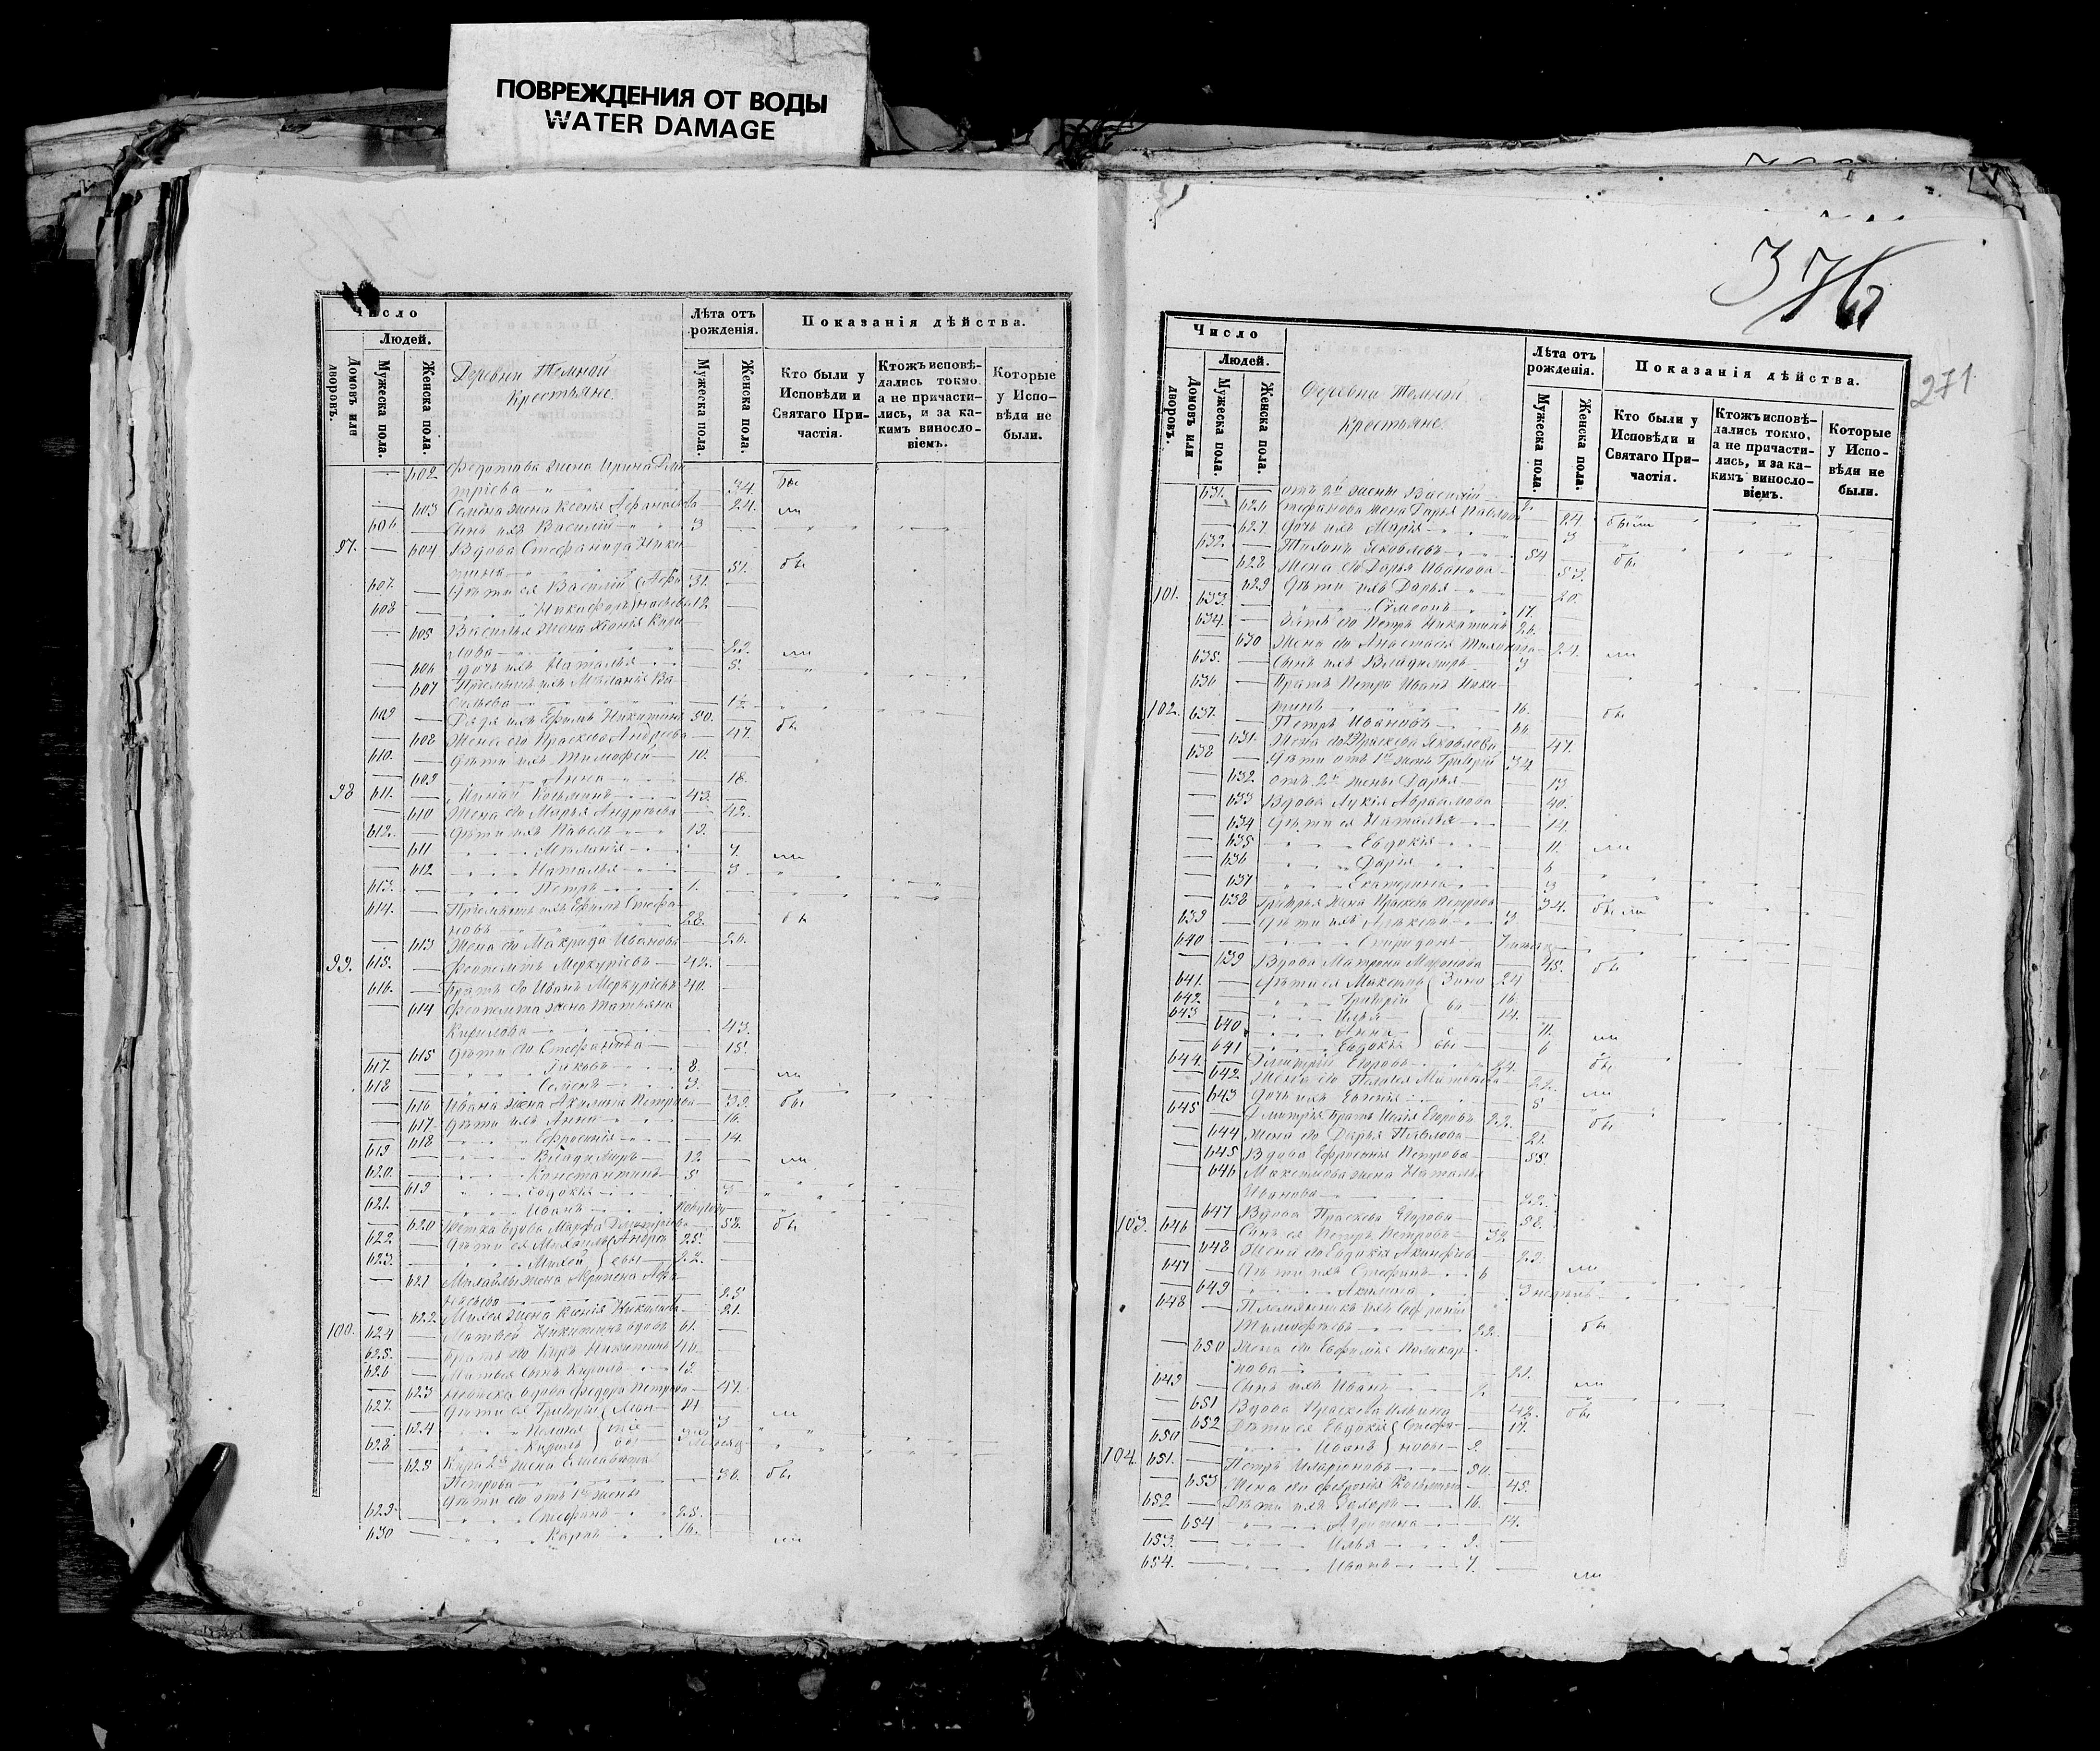 ПОВРЕЖДЕНИЯ ОТ ВОДЫ
WATER DAMAGE
Число
Людей.
Домовъ или дворовъ.
Мужеска пола.
Женска пола.
Деревни Темной
Крестьяне
Лѣта отъ рожденія.
Мужеска пола.
Женска пола.
Показанія дѣйства.
Кто были у Исповѣди и Святаго Причастія.
Ктожъ исповѣдались токмо а не причастились, и за какимъ винословіемъ.
Которые у Исповѣди не были.
602 Федотова жена Ирина Дми
трiева 34. бы
603 Семена жена Ксенiя Афанасьева 24. ли
606 Сынъ ихъ Василiй 3
97. 604 Вдова Стефанида Ники
тина 51. бы
607. Дѣти ея Василiй (Афа 31.
608 Никифоръ) насьевы 12
605 Василья жена Ксенiя Кири
лова 22. ли
606 Дочь ихъ Наталья 5.
607 Меланiя Ва
сильева 1½
609 Дядя ихъ Ефимъ Никитинъ 50. бы
608 Жена его Прасковья Андреева 47.
610. Дѣти ихъ Тимофей 10.
609 Анна 18.
98 611. Козьминъ 43.
610 Жена его Марья Андреева 42.
612. Дѣти ихъ Павелъ 13.
611 Меланiя 7. ли
612 Наталья 3
613. Петръ 1.
614. Прiемышъ ихъ Ефимъ Стефа
новъ 28. бы
613 Жена его Макрида Иванова 26.
99. 615. Феоктистъ Меркурiевъ 42.
616. Братъ его Иванъ Меркурiевъ 40.
614 Феоктиста жена Татьяна
Кирилова 43.
615 Дѣти его Стефанида 15.
617. Яковъ 8. ли
618 Семенъ 3.
616 Ивана жена Акилина Петрова 39. бы
617 Дѣти ихъ Анна 16.
618 Ефросинiя 14.
619 Владимiръ 12 ли
620. Константинъ 5
619 Евдокiя 3
621. Иванъ
620 Тетка вдова Марфа Дмитрiева 58. бы
622 Дѣти ея Михаилъ (Андре 25.
623. Михей) евы 22.
621 Михаилы жена Агрипена Афа
насьева 25
622. Михея жена Ксенiя Николаева 21.
100. 624 Матвей Никитинъ вдовъ 61.
625. Братъ его Киръ Никитинъ 46.
626 Матвея сынъ Кирилъ 13.
623 Невѣстка вдова Федора Петрова 47.
627. Дѣти ея Григорiй 14 ли
624 Пелагея 3
628. Кирилъ
625 Кира 2й жена Елисавета
Петрова 30. бы
Дѣти его отъ 1й жены
629. Стефанъ 25.
630 Карпъ 16. ли
376
271
Число
Людей.
Домовъ или дворовъ.
Мужеска пола.
Женска пола.
Деревни Темной
Крестьяне
Лѣта отъ рожденія.
Мужеска пола.
Женска пола.
Показанія дѣйства.
Кто были у Исповѣди и Святаго Причастія.
Ктожъ исповѣдались токмо, а не причастились, и за какимъ винословіемъ.
Которые у Исповѣди не были.
631. отъ 2й жены Василiй 2.
626 Стефанова жена Дарья Павлова 24 были
627 Дочь ихъ Марiя 3
632. Тихонъ Яковлевъ 54 бы
628 Жена его Дарья Иванова 53.
101. 629 Дѣти ихъ Дарья 20.
633. Сумеонъ 17.
634. Зять его Петръ Никитинъ 26.
630 Жена его Анастасiя Тихонова 24. ли
635. Сынъ ихъ Владимiръ 3
636 Братъ Петра Иванъ Ники
тинъ 16. бы
102. 637. Петръ Ивановъ 66
631. Жена его Прасковья Яковлева 47.
638 Дѣти отъ 1й жены Григорiй 34.
632 отъ 2й жены Дарья 13
633 Вдова Лукiя Авраамова 40.
634 Дѣти ея Наталья 14.
635 Евдокiя 11. ли
636 Дарiя 6
637 Екатерина 3
638 Григорья жена Прасковiя Петрова 34. были
639 Дѣти ихъ Алексѣй 3
640 Спиридонъ
639 Вдова Матрона Миронова 45. бы
641. Дѣти ея Максимъ 24
642. Григорiй 16.
643 Илья 14.
640 Анна 11. ли
641 Евдокiя 6
644. Дмитрiй Егоровъ 24. бы
642. Жена его Пелагея Матвѣева 22. ли
643 Дочь ихъ Евгенiя 5
645 Дмитрiя братъ Исаiя Егоровъ 22. бы
644 Жена его Дарья Павлова 21.
645 Вдова Ефросинiя Петрова 55.
646 Максимова жена Наталья
Иванова 22.
647 Вдова Прасковья Егорова 58.
103. 646 Сынъ ея Петръ Петровъ 32
648 Жена его Евдокiя Акинфiева 22. ли
647 Дѣти ихъ Стефанъ 6
649 Акилина 3 недѣль
648 Племянникъ ихъ Софронiй
Тимофѣевъ 22. бы
650 Жена его Евфимiя Поликар
пова 21.
649 Сынъ ихъ Иванъ 2. ли
651 Вдова Прасковья Ильина 42. бы
652 Дѣти ея Евдокiя (Стефа 17.
650 Иванъ) новы 9.
104. 651. Петръ Иларiоновъ 50.
653 Жена его Феврония Козьмина 45.
652 Дѣти ихъ Егоръ 16.
654 Агрипена 14.
653. Илья 9.
654. Иванъ 7. ли